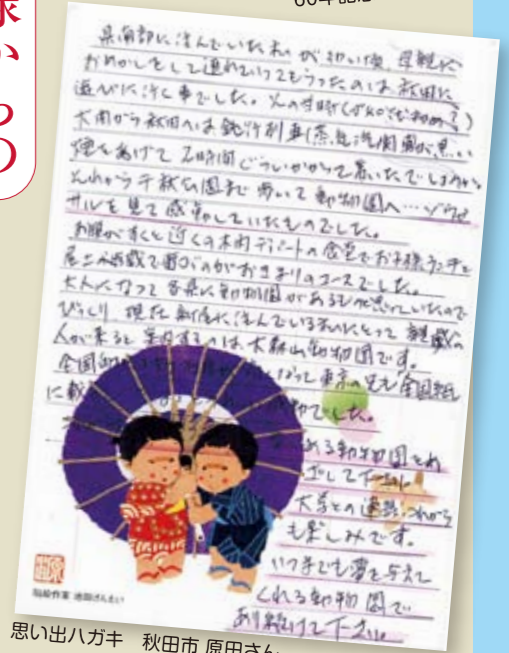 60年記念
様から
県南部に住んでいた私が幼い頃、母親に
おめかしをして連れていってもらったのは、秋田に
遊びに行く事でした。その当時(S40年初め?)
大曲から秋田へは鈍行列車(蒸気機関車)が黒い
煙をあげて2時間ぐらいかかって着いたでしょうか。
それから千秋公園まで歩いて動物園へ…ゾウや
サルを見て感激していたものでした。
お腹がすくと近くの木内デパートの食堂でお子様ランチと
屋上の遊戯で遊ぶのがおきまりのコースでした。
大人になって各県に動物園があるものと思っていたので
びっくり 現在新屋に住んでいる私にとって親戚の
人が来ると案内するのは、大森山動物園です。
全国
なって東京の兄も全国紙
に載
でした。
ある動物園をめ
ざして下さい
大学との連携これから
も楽しみです。
いつまでも夢を与えて
くれる動物園で
あり続けて下さい。
思い出ハガキ 秋田市 原田さん